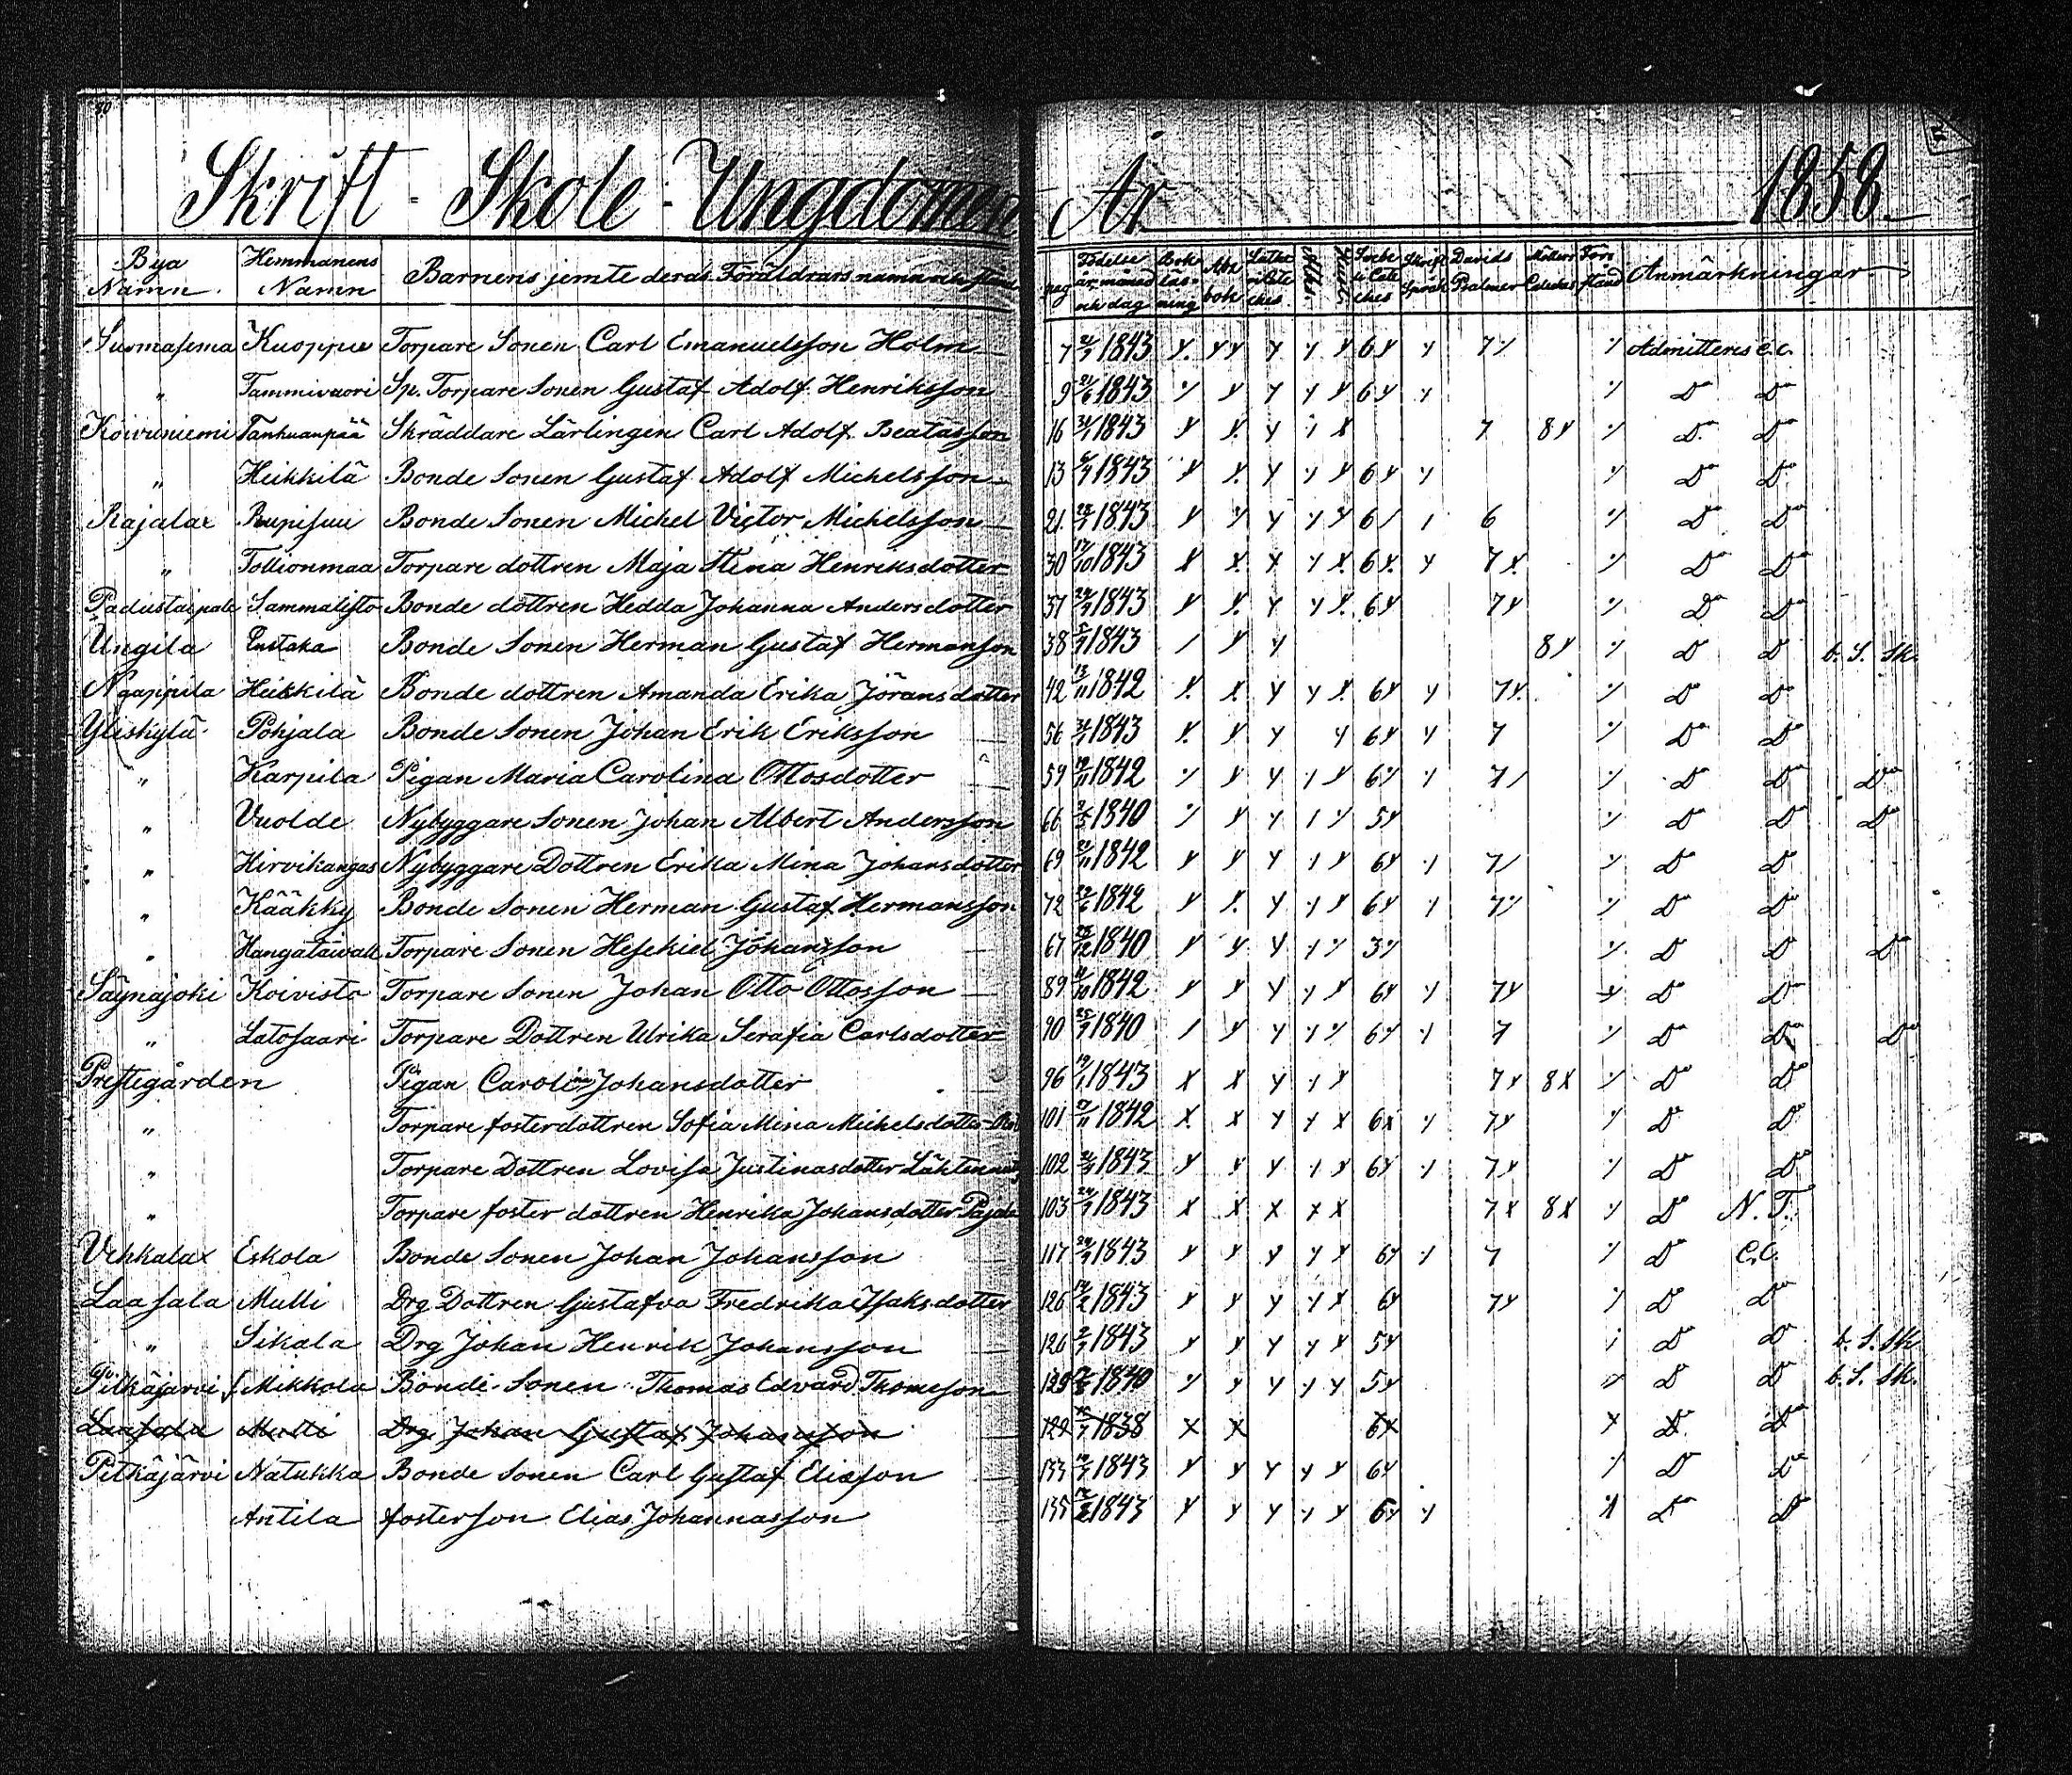 80
5
Skrift - Skole - Ungdomen År 1858
Bya Namn Hemmanens Namn Barnens jemte deras Föräldrars namn och stånd pag Födelse år månad och dag Bok läs- ning Abc bok Luthe Cate ches Skrift Språk Davids Psalmer För stånd Anmärkningar
Suomasema Kuoppu Torpare Sonen Carl Emanuelsson Holm 7 1843 y. yy y y y 6y y 7y Admitteres C.C.
" Tammivuori Sp. Torpare Sonen Gustaf Adolf Henriksson 9 1843 y y y y 6y Do Do
Koivuniemi Tanhuanpää Skräddare Lärlingen Carl Adolf Beatasson 16 1843 y y. y x 7 8y Do Do
" Heikkilä Bonde Sonen Gustaf Adolf Michelsson 13 1843 y y. y y 6y Do Do
Rajalax Rupisuu Bonde Sonen Michel Victor Michelsson 21 1843 y y y 6 6 Do Do
" Tottionmaa Torpare dottren Maja Stina Henriksdotter 30 17/10 1843 x x. x y x. 6y. y 7x. Do Do
Padustaipale Sammalisto Bonde dottren Hedda Johanna Andersdotter 37 1843 y y. y y y. 6y 7y Do Do
Ungila Bonde Sonen Herman Gustaf Hermansson 38 1843 y y 8y D D b. S. Sk.
Naappila Heikkilä Bonde dottren Amanda Erika Jöransdotter 42 13/11 1842 x. x y y x. 6y y 7y. Do Do
Yliskylä Pohjala Bonde Sonen Johan Erik Eriksson 56 1843 y. y y y 6y y 7 Do Do
" Karpila Pigan Maria Carolina Ottosdotter 59 1842 y y y 6 7 Do Do Do
" Vuolde Nybyggare Sonen Johan Albert Andersson 66 1840 y y 5y Do Do Do
" Hirvikangas Nybyggare Dottren Erika Mina Johansdotter 69 1842 y y y y 6y 7 Do Do
" Kääkky Bonde Sonen Herman Gustaf Hermansson 72 22/6 1842 y y. y y 6y 7 Do Do
" Hangataivale Torpare Sonen Hesekiel Johansson 67 1840 y y y 3 D D Do
Säynäjoki Koivisto Torpare Sonen Johan Otto Ottosson 89 1842 y y y y y 6y y 7y Do Do
" Latosaari Torpare Dottren Ulrika Serafia Carlsdotter 90 1840 y y 6y 7 Do Do Do
Prestegården Pigan Carolina Johansdotter 96 1843 x x y y 7y 8x Do Do
" Torpare fosterdottren Sofia Mina Michelsdotter 101 1842 x. x x y x 6x 7y D D
" Torpare Dottren Lovisa Justinasdotter 102 1843 y y y y 6y 7y Do Do
" Torpare foster dottren Henrika Johansdotter 103 1843 x x x x x 7x 8x D N. T.
Vehkalax Eskola Bonde Sonen Johan Johansson 117 1843 y y y y y 6y 7 D C.C.
Laasala Mulli Drg Dottren Gustafva Fredrika Isaksdotter 126 1843 y y y y x 6y 7y Do Do
" Sikala Drg Johan Henrik Johansson 126 1843 y y y y y 5y Do D b. S. Sk.
Pitkäjärvi Mikkola Bonde Sonen Thomas Edvard Thomsson 1840 y y y y 5y D D b. S. Sk.
Laasala Mulli Drg Johan Gustaf Johansson 129 1838 x x 6x x D. Do
Pitkäjärvi Natukka Bonde Sonen Carl Gustaf Elisson 133 1843 y y y y y 6y Do Do
Antila fosterson Elias Johannasson 135 1843 y y y y 6y y Do Do